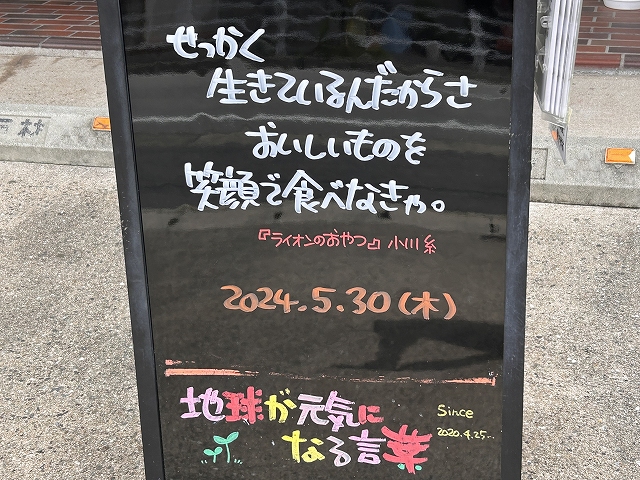 せっかく
生きているんだからさ
おいしいものを
笑顔で食べなきゃ。
『ライオンのおやつ』 小川糸
2024.5.30(木)
地球が元気に
なる言葉
Since
2020.4.25..
林